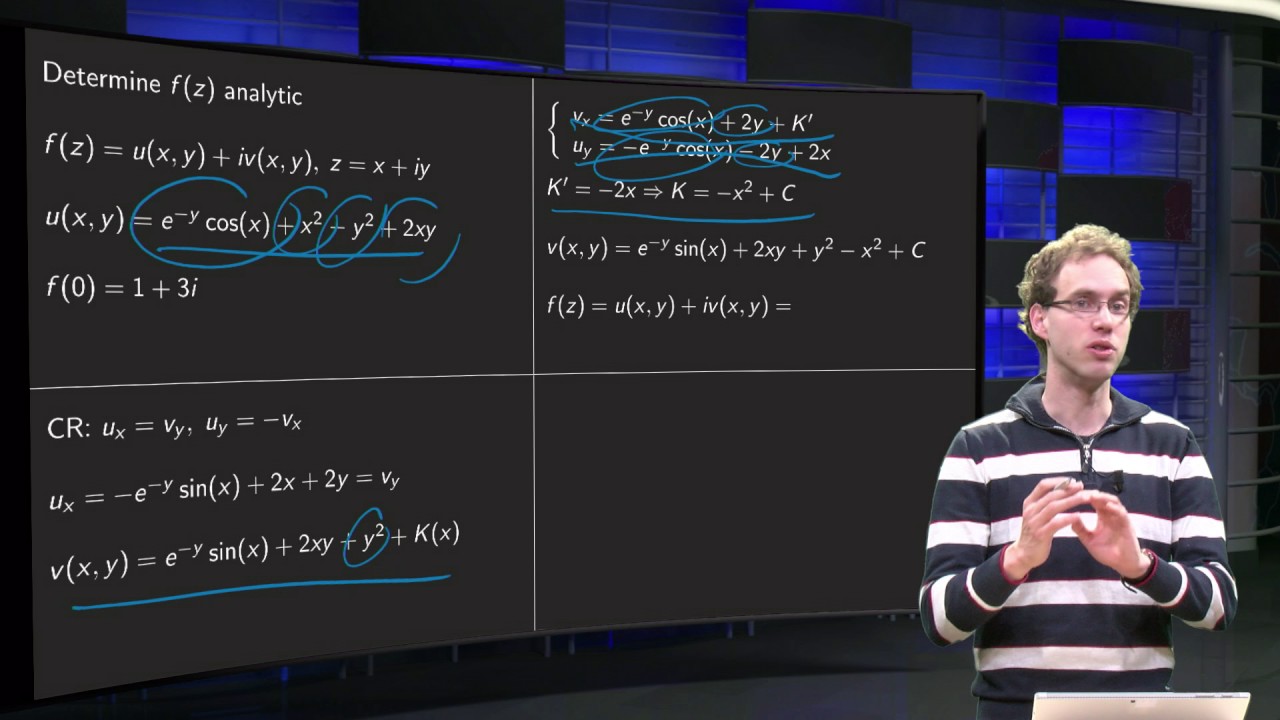 Determine f(z) analytic
f(z) = u(x, y) + iv(x, y), z = x + iy
u(x, y) = e^{-y} cos(x) + x² − y² + 2xy
f(0) = 1 + 3i
CR: u_x = v_y, u_y = −v_x
u_x = −e^{-y} sin(x) + 2x + 2y = v_y
v(x, y) = e^{-y} sin(x) + 2xy + y² + K(x)
v_x = e^{-y} cos(x) + 2y + K′
u_y = −e^{-y} cos(x) − 2y + 2x
K′ = −2x ⇒ K = −x² + C
v(x, y) = e^{-y} sin(x) + 2xy + y² − x² + C
f(z) = u(x, y) + iv(x, y) =